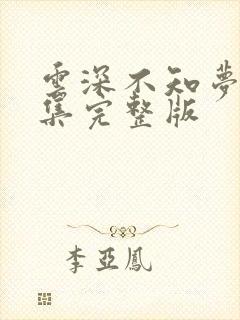 雲深不知夢
集完整版
李亞鳳